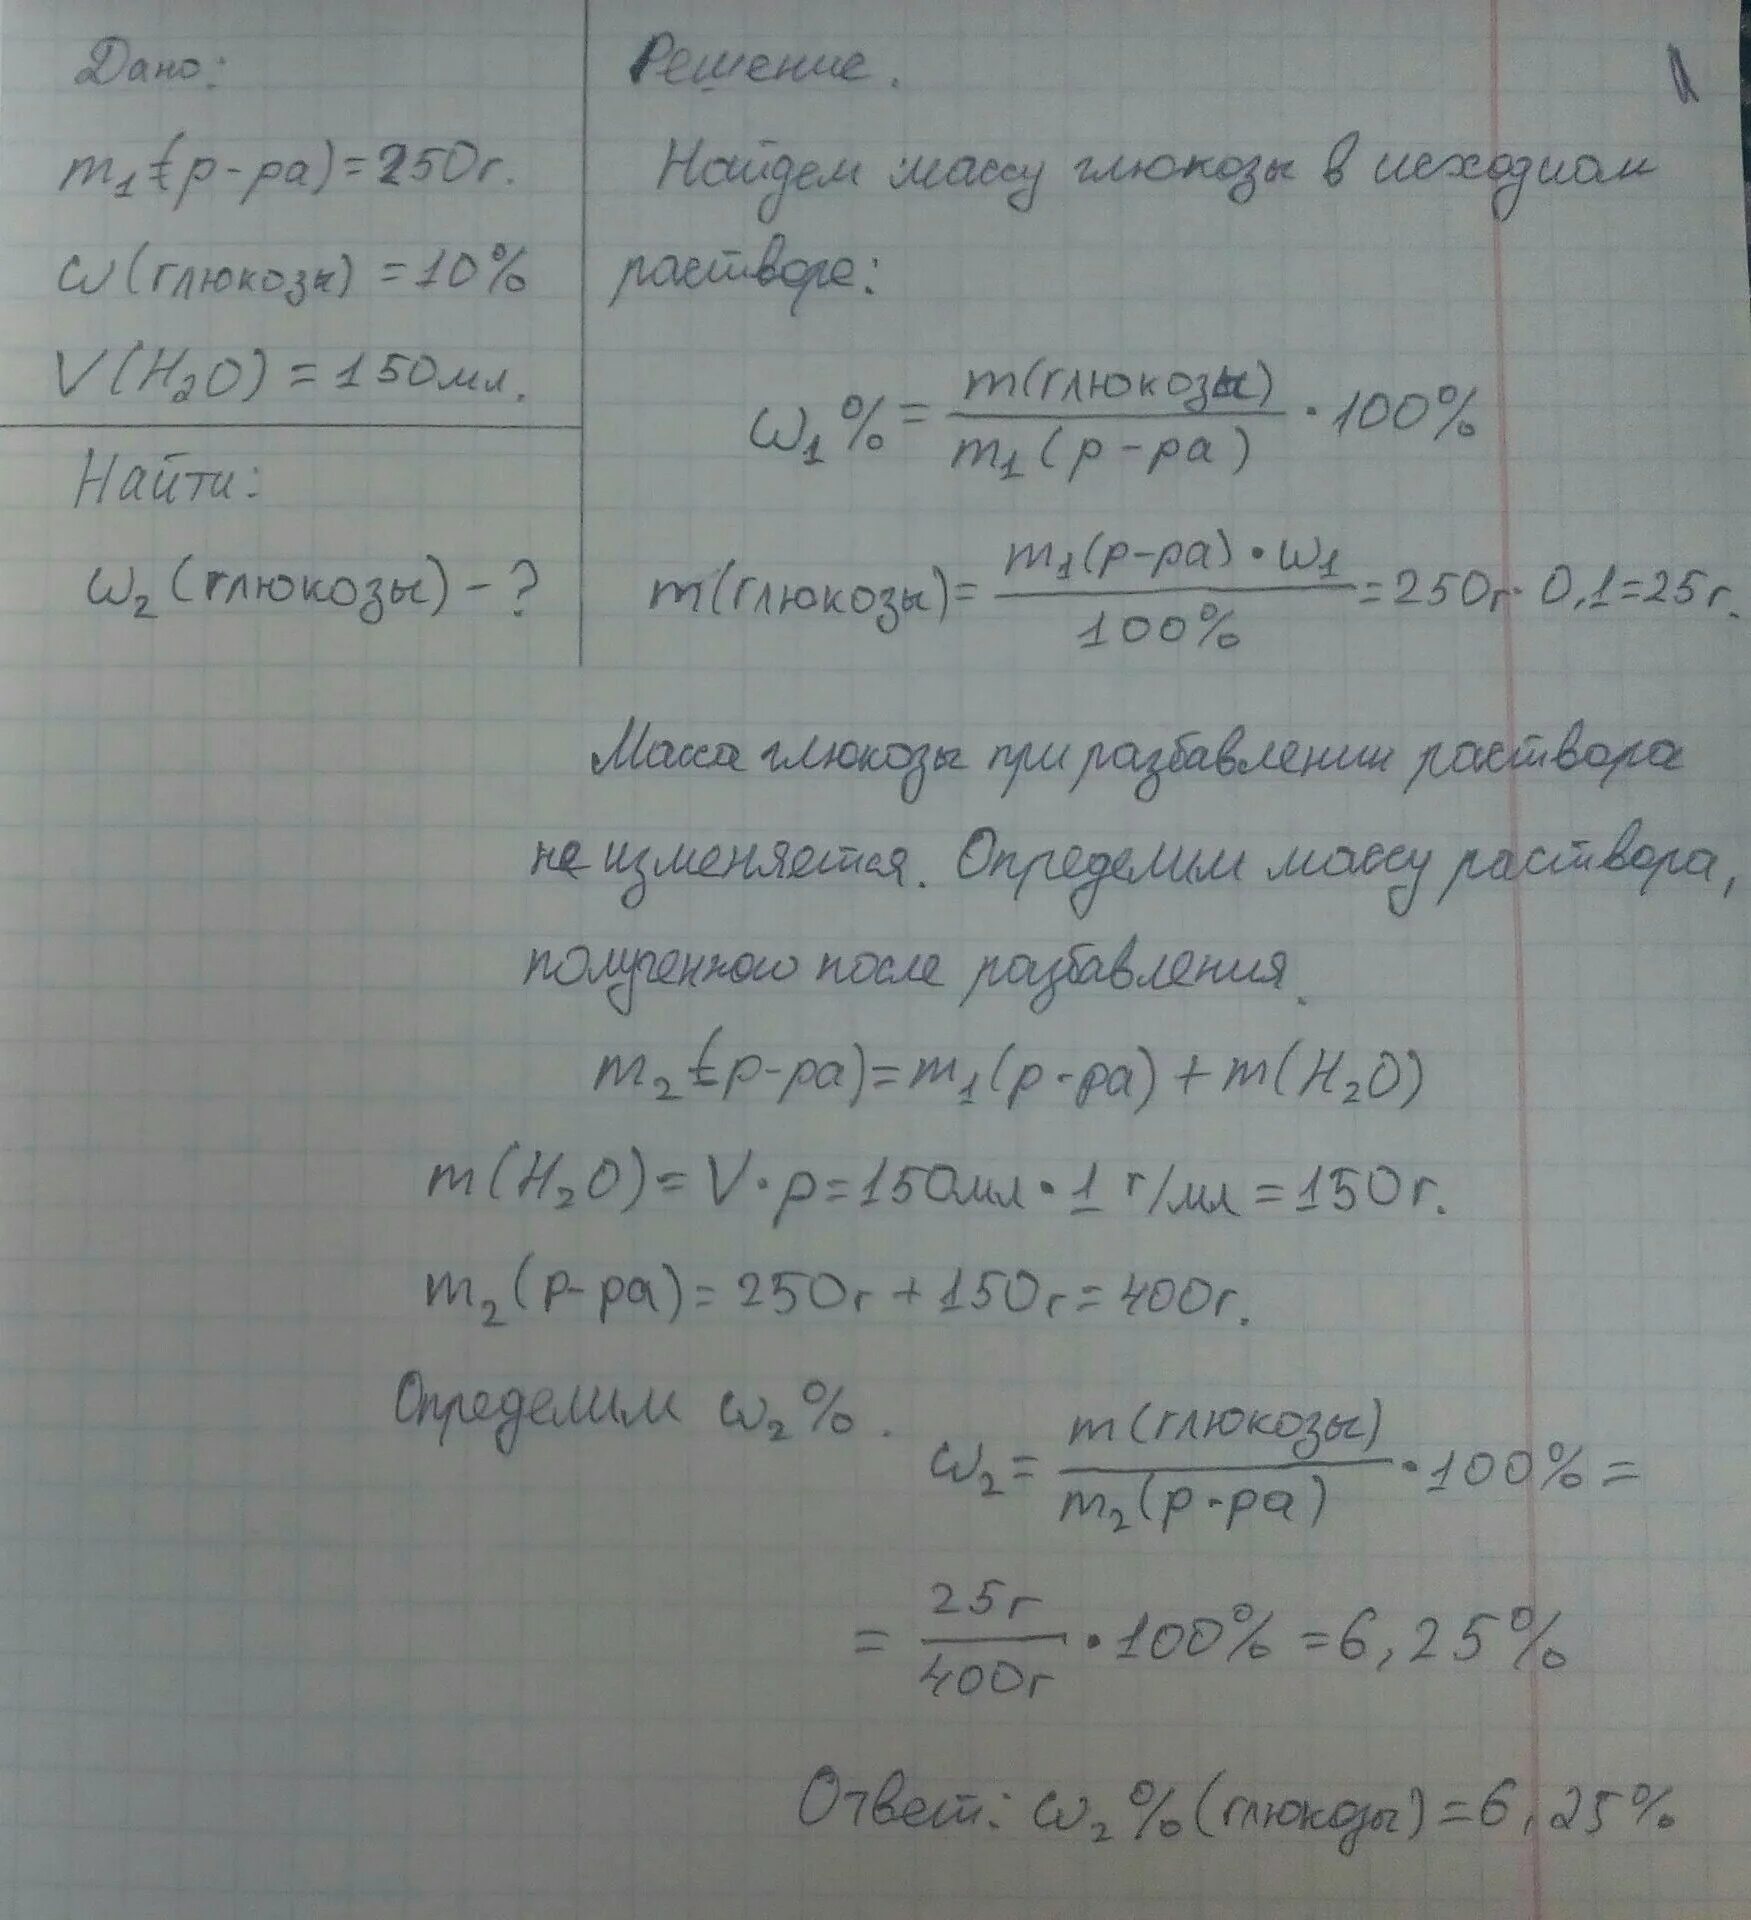 Дано:
m₁(р-ра)=250г.
ω(глюкозы)=10%
V(H₂O)=150мл.
Найти:
ω₂(глюкозы)-?
Решение.
Найдем массу глюкозы в исходном
растворе:
ω₁%= m(глюкозы) / m₁(р-ра) · 100%
m(глюкозы)= m₁(р-ра)·ω₁ / 100% =250г·0,1=25г.
Масса глюкозы при разбавлении раствора
не изменяется. Определим массу раствора,
полученного после разбавления.
m₂(р-ра)=m₁(р-ра)+m(H₂O)
m(H₂O)=V·ρ=150мл·1 г/мл=150г.
m₂(р-ра)=250г+150г=400г.
Определим ω₂%.
ω₂= m(глюкозы) / m₂(р-ра) ·100%=
= 25г / 400г ·100%=6,25%
Ответ: ω₂%(глюкозы)=6,25%